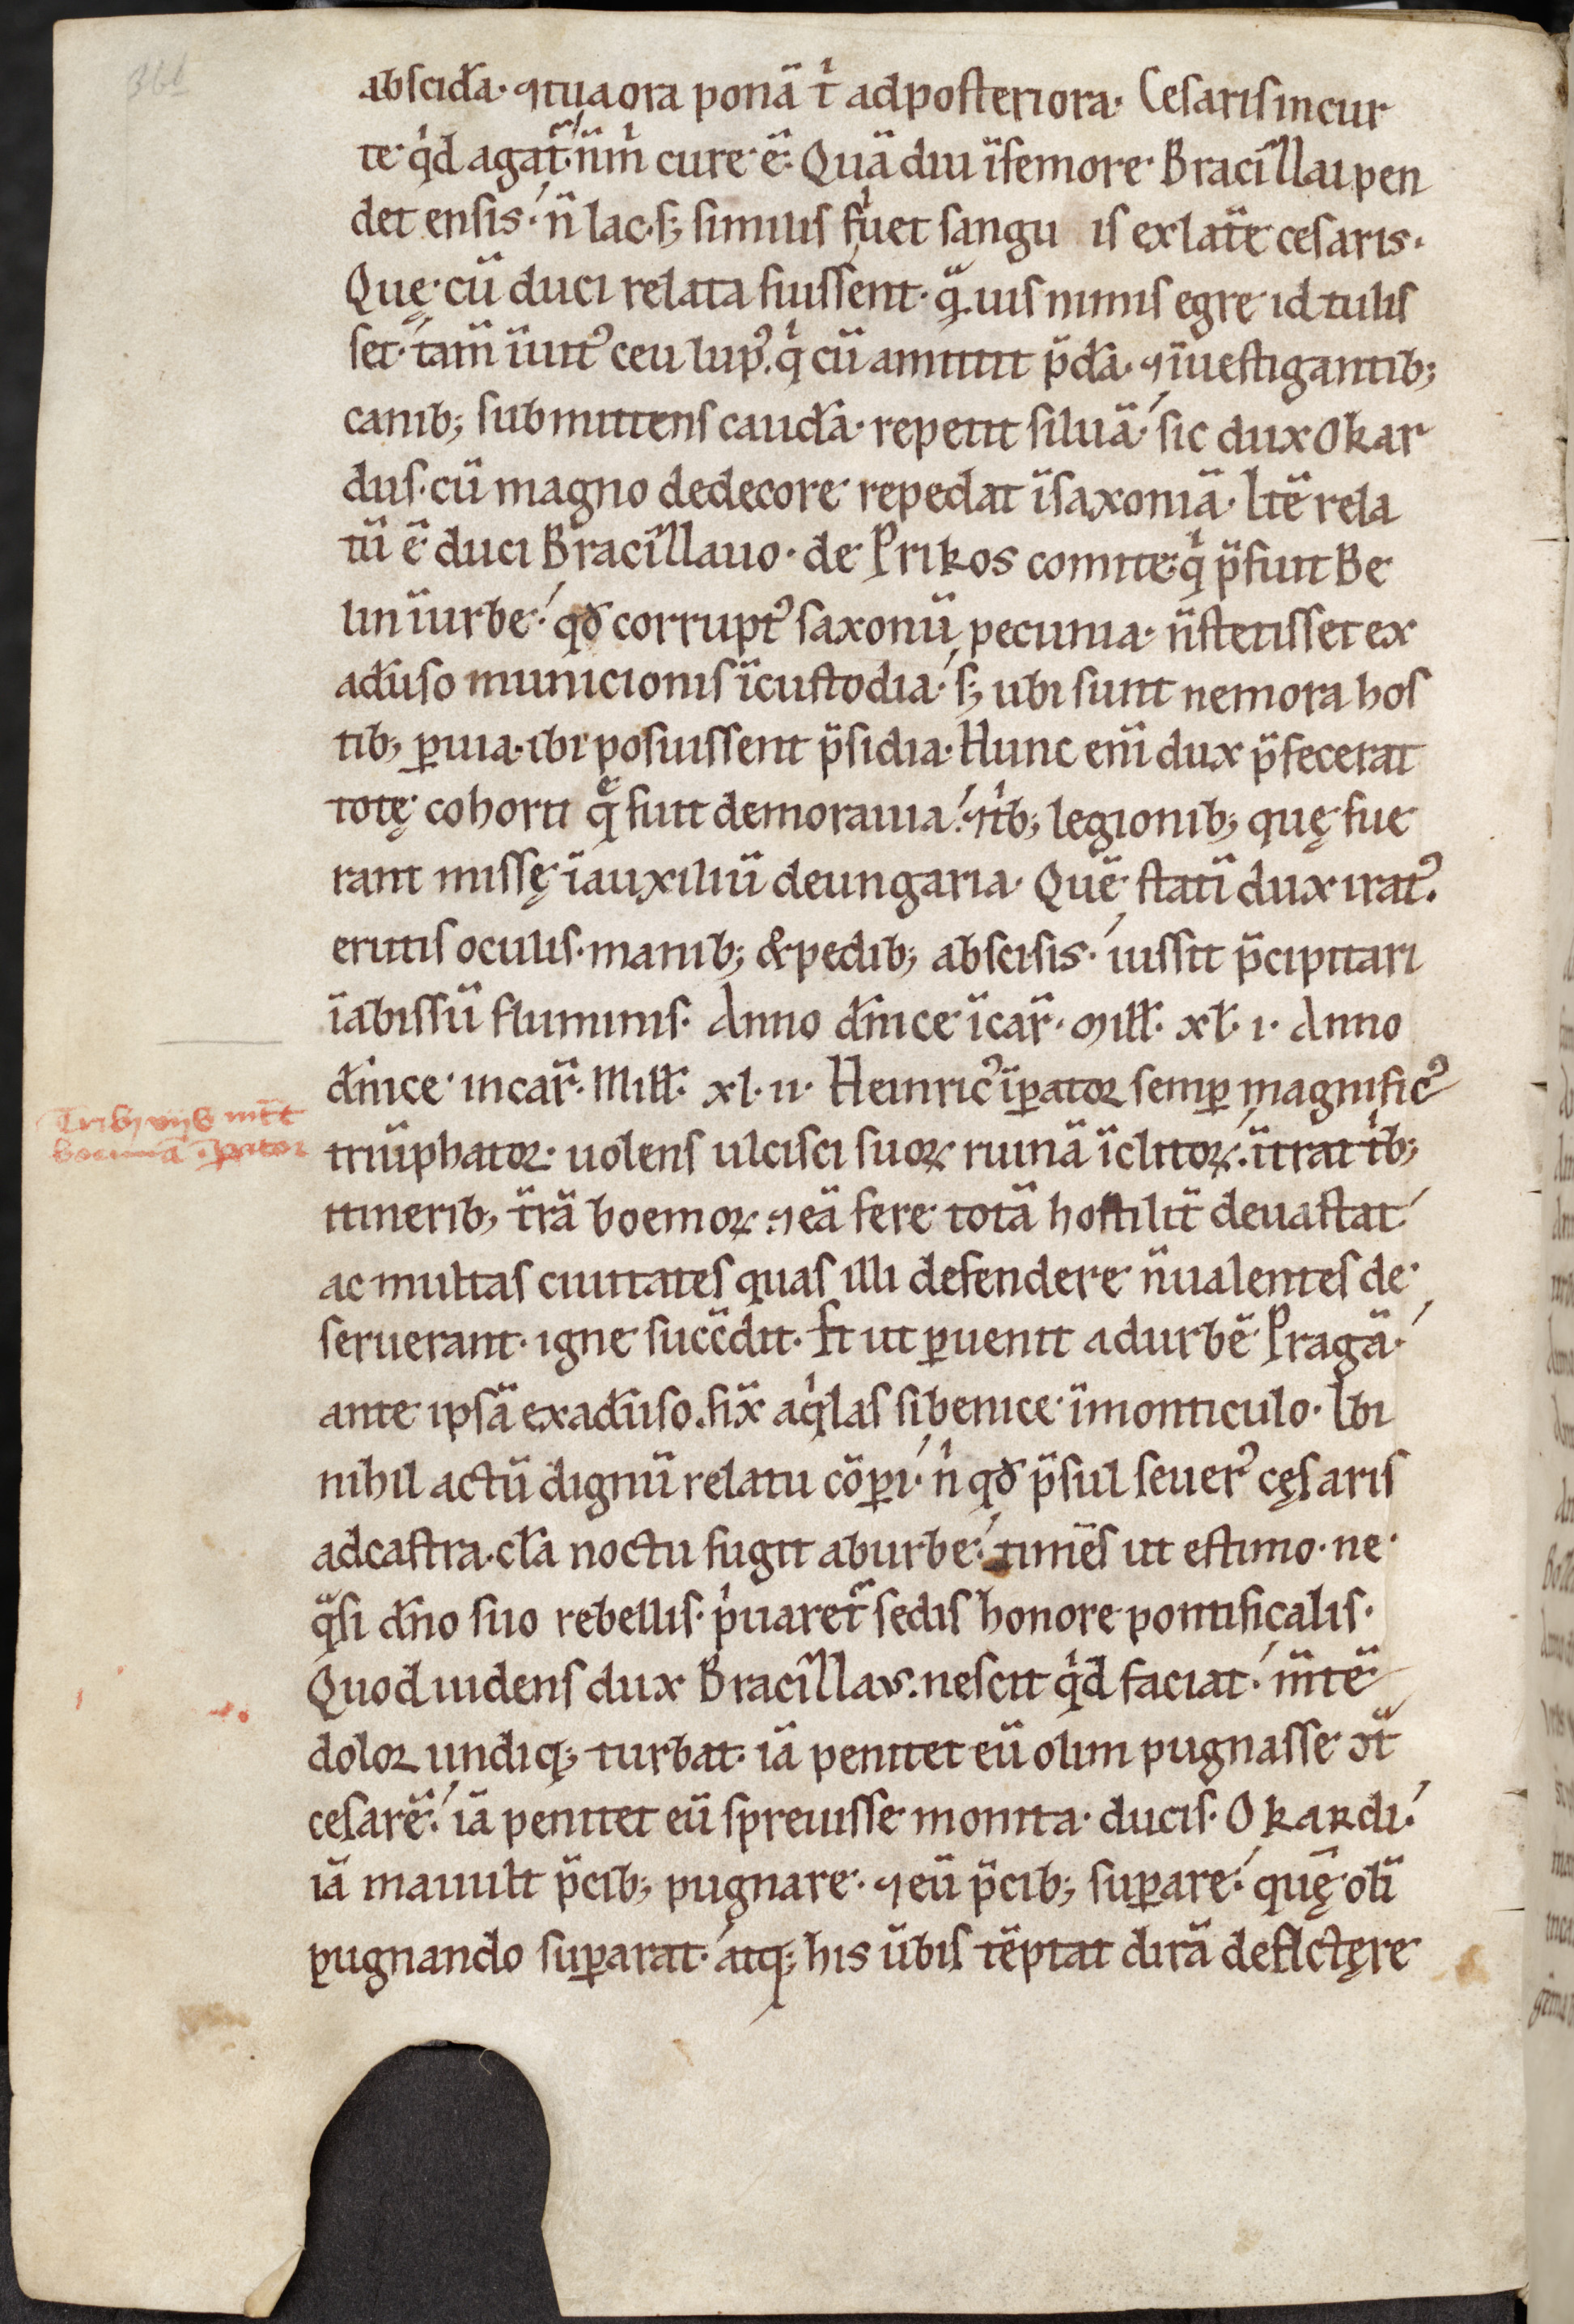 361
abscidā· ⁊tua ora ponā t̍ ad posteriora· Cesaris in cur
te q̍d agat̄· n̄m̍ cure ē· Quā diu ī femore Bracīllai pen
det ensis· n̄ lac· s; similis fuet sangu is ex latē cesaris·
Quę cū duci relata fuissent· q̄uis nimis egre id tulis
set· tam̄ īuitꝰ ceu lupꝰ· q̍ cū amittit p̄dā· ⁊ īuestigantib;
canib; submittens caudā· repetit siluā· sic dux Okar
dus· cū magno dedecore repedat ī saxoniā· Itē rela
tū ē duci Bracīllauo· de Prikos comite· q̍ p̄fuit Be
lin ī urbe· qđ corruptꝰ saxonū pecunia· n̄ stetisset ex
adūso municionis ī custodia· s; ubi sunt nemora hos
tib; ꝑuia· ibi posuissent p̄sidia· Hunc enī dux p̄fecerat
totę cohorti q̄ fuit de morauia· ⁊ t̍b; legionib; quę fue
rant missę ī auxiliū de ungaria· Quē statī dux iratꝰ·
erutis oculis· manib; & pedib; abscisis· iussit p̄cipitari
ī abissū fluminis· Anno dn̄ice īcar̄· Mill̄· xl· i· Anno
dn̄ice incar̄· Mill̄· xl· ii· Heinricꝰ īꝑator semꝑ magnificꝰ
triūphator· uolens ulcisci suoꝝ ruinā īclitoꝝ· ītrat t̍b;
itinerib; t̄rā boemoꝝ· ⁊ eā fere totā hostilit̄ deuastat
ac multas ciuitates quas illi defendere n̄ ualentes de
seruerant· igne succ̄dit· Et ut ꝑuenit ad urbē Pragā·
ante ipsā ex adūso· fix̄ aq̍las sibenice ī monticulo· Ibi
nihil actū dignū relatu cōꝑi· n̍ qđ p̄sul seuerꝰ cęsaris
ad castra· clā noctu fugit ab urbe· timēs ut estimo· ne
q̄si dn̄o suo rebellis· p̍uaret̄ sedis honore pontificalis·
Quod uidens dux Bracīllaus· nescit q̍d faciat· m̄tē
dolor undiq; turbat· iā penitet eū olim pugnasse ↄt̄
cesarē· iā penitet eū spreuisse monita· ducis· Okardi·
iā mauult p̄cib; pugnare· ⁊ eū p̄cib; suꝑare· quę̄ olī
pugnando suꝑarat· atq; his ūbis tēptat dirā deflctęre
boemiā īꝑator